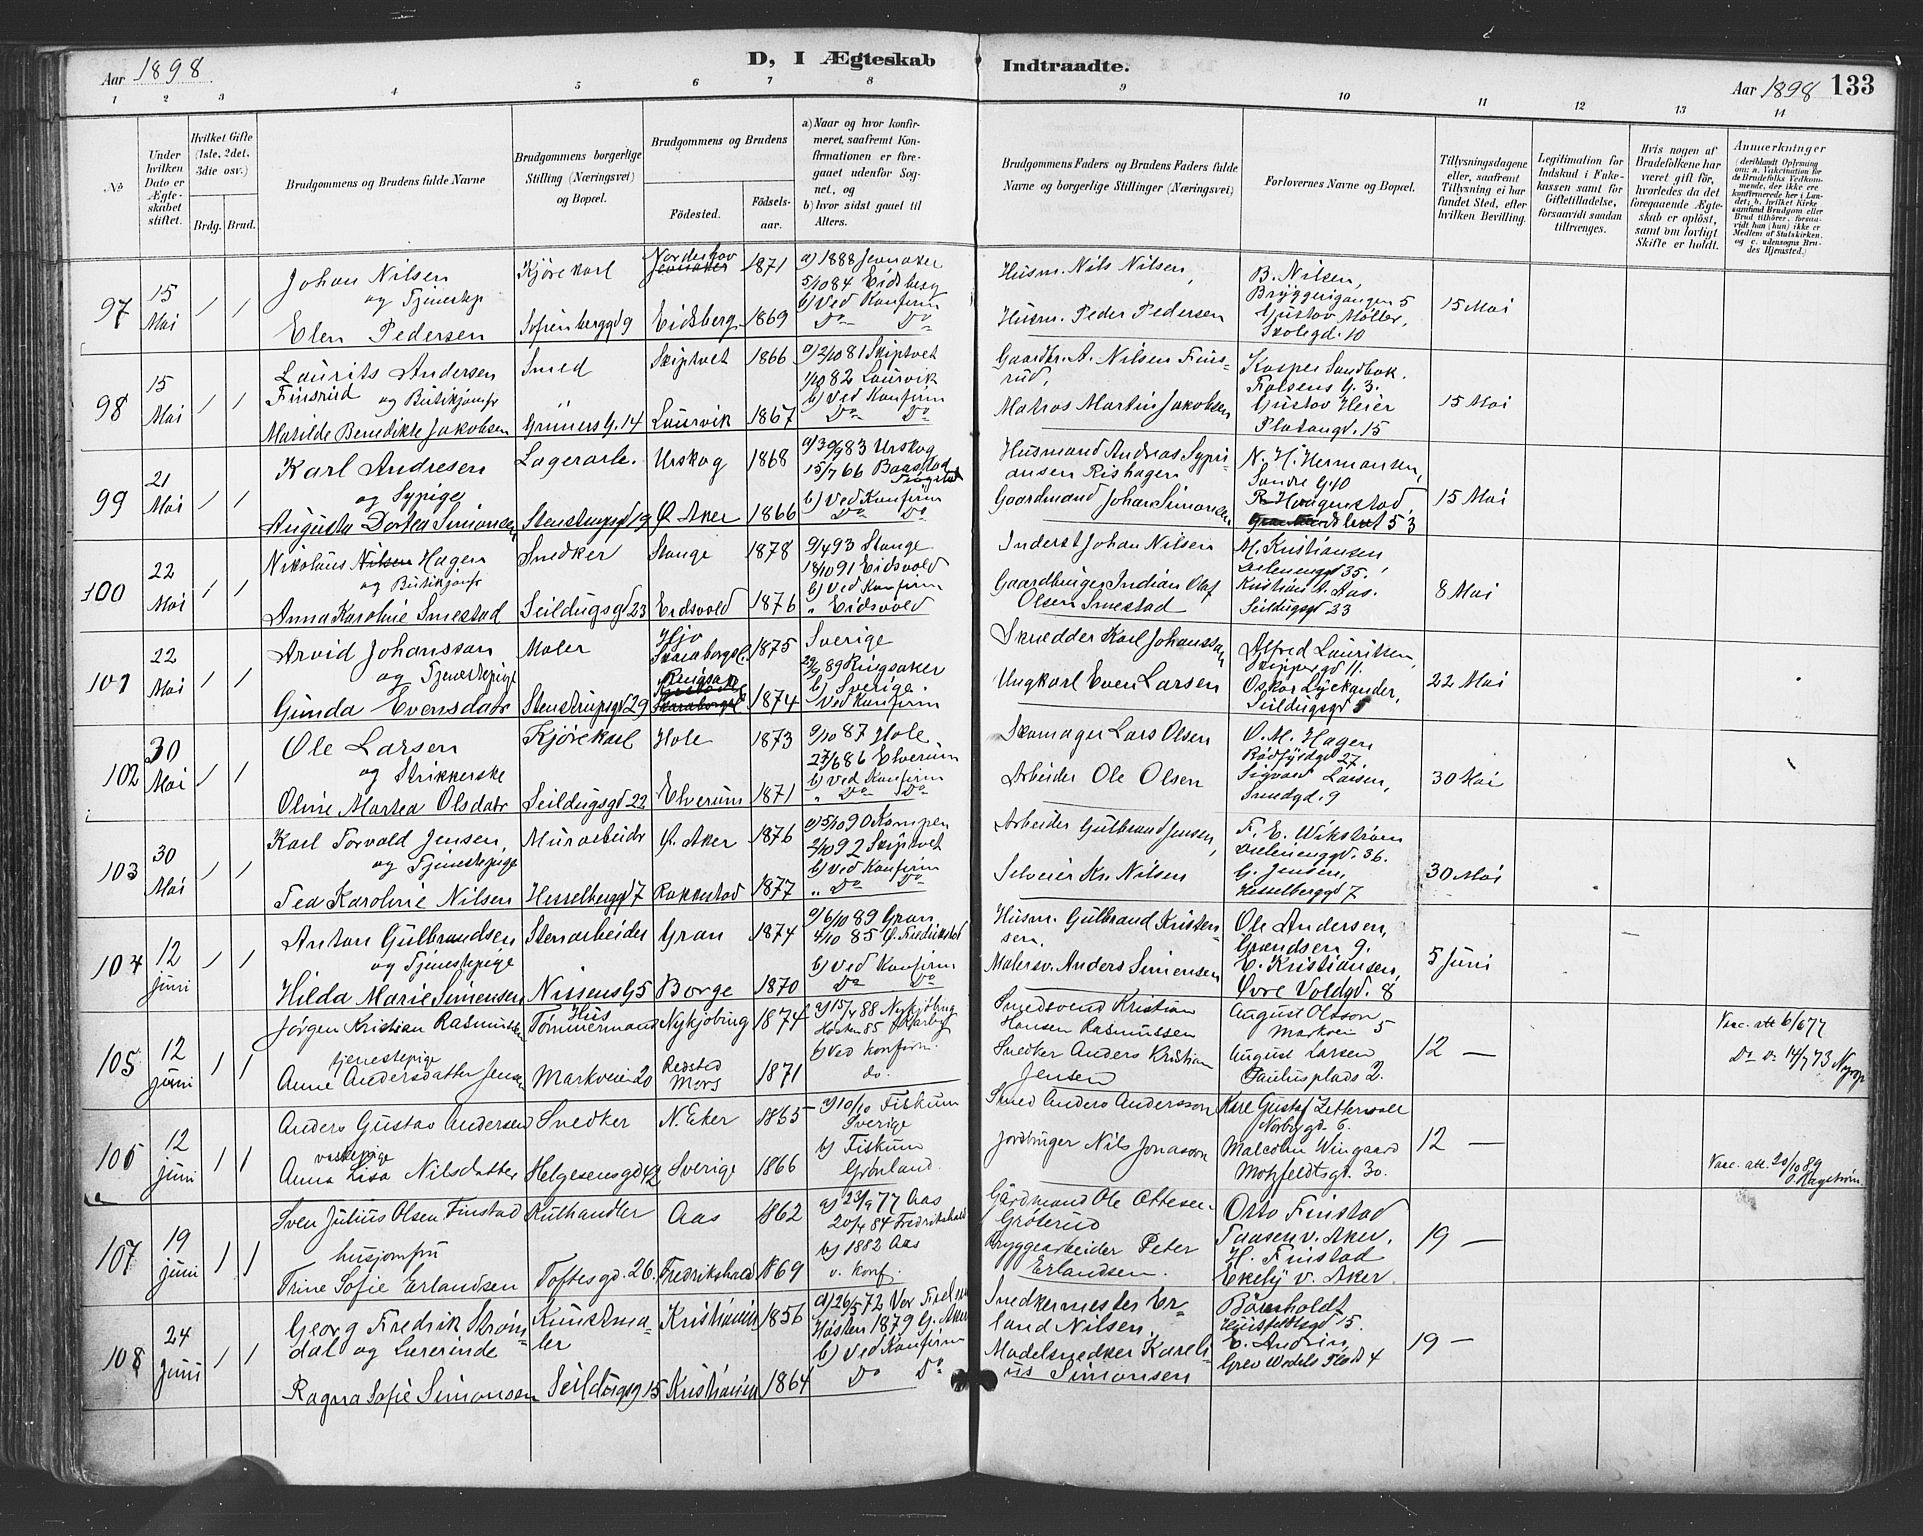 Aar 1898
D, I Ægteskab
Indtraadte.
Aar 1898 133
1 2 3 4 5 6 7 8 9 10 11 12 13 14
No
Under hvilken Dato er Ægteskabet stiftet.
Hvilket Gifte (1ste, 2det, 3die osv.)
Brdg. Brud.
Brudgommens og Brudens fulde Navne
Brudgommens borgerlige Stilling (Næringsvei) og Bopæl.
Brudgommens og Brudens
Fødested.
Fødselsaar.
a) Naar og hvor konfirmeret, saafremt Konfirmationen er foregaaet udenfor Sognet, og
b) hvor sidst gaaet til Alters.
Brudgommens Faders og Brudens Faders fulde Navne og borgerlige Stillinger (Næringsvei)
Forlovernes Navne og Bopæl.
Tillysningsdagene eller, saafremt Tillysning ei har fundet Sted, efter hvilken Bevilling.
Legitimation for Indskud i Fakkassen samt for Giftetilladelse, forsaavidt saadan tiltrænges.
Hvis nogen af Brudefolkene har været gift før, hvorledes da det foregaaende Ægteskab er opløst, samt om lovligt Skifte er holdt.
Anmærkninger
97 15 Mai 1 1
Johan Nilsen
og Tjenestep
Elen Pedersen
Kjørekarl
Sofienberggd 9
Norderhov
Jevnaker
Eidsberg
1871
1869
a) 1888 Jevnaker
5/10 84 Eidsberg
b) Ved Konfirm
Do Do
Husm. Nils Nilsen,
Husm. Peder Pedersen
B. Nilsen,
Bryggerigangen 5
Gustav Møller,
Skolegd. 10
15 Mai
98 15 Mai 1 1
Laurits Andersen
Finsrud og Butikjomfr
Matilde Benedikte Jakobsen
Smed
Grüners G. 14
Skiptvet
Laurvik
1866
1867
a) 2/10 81 Skiptvet
1/10 82 Laurvik
b) Ved Konfirm
Do Do
Gaardbr. A. Nilsen Fins-
rud,
Matros Martin Jakobsen
Kasper Sandbok.
Falsens G. 3.
Gustav Heier
Platougd. 15
15 Mai
99 21 Mai 1 1
Karl Andresen
og Sypige
Augusta Dortea Simonsen
Lagerarb.
Stenstrupsgd 19
Urskog
Ø. Aker
1868
1866
a) 30/9 83 Urskog
b) Ved Konfirm
Do Do
Husmand Andreas Sypri-
ansen Rishagen
Gaardmand Johan Simonsen
N. H. Hermansen,
Søndre G 40
Haugenstad,
53
15 Mai
100 22 Mai 1 1
Nikolaus Nilsen Hagen
og Butikjomfr
Anna Karoline Smestad
Snedker
Seildugsgd 23
Stange
Eidsvold
1878
1876
9/4 93 Stange
18/10 91 Eidsvold
b) Ved Konfirm
" Eidsvold
Inderst Johan Nilsen
Gaardbruger Indian Olaf
Olsen Smestad
M. Kristiansen
Kristian A. Aas.
Seildugsgd 23
8 Mai
101 22 Mai 1 1
Arvid Johansson
og Tjenestepige
Gunda Evensdatr
Maler
Stenstrupsgd 29
Hjo
Skaraborgsl.
Ringsak
Skaraborgsl
1875
1874
Sverige
29/9 89 Ringsaker
b) Sverige.
Ved Konfirm
Skrædder Karl Johansson
Ungkarl Even Larsen
Alfred Lauritsen,
Skippergd 11.
Oskar Lyckander,
Seildugsgd 5
22 Mai
102 30 Mai 1 1
Ole Larsen
og Strikkerske
Oline Martea Olsdatr
Kjørekarl
Seildugsgd 22
Hole
Elverum
1873
1871
9/10 87 Hole
27/6 86 Elverum
b) Ved Konfirm
" Do Do
Skomager Lars Olsen
Arbeider Ole Olsen
O. M. Hagen
Rødfyldgd 27.
Sigvard Larsen,
Smedgd. 9
30 Mai
103 30 Mai 1 1
Karl Torvald Jensen,
og Tjenestepige
Tea Karoline Nilsen
Murarbeidr
Hesselberggd 7
Ø. Aker
Rakkestad
1876
1877
a) 5/10 90 Kampen
2/10 92 Skiptvet
b) Ved Konfirm
" Do Do
Arbeider Gulbrand Jensen,
Selveier Kr. Nilsen
F. E. Wikstrøm
Delenenggd. 36.
G. Jensen,
Hesselberggd 7
30 Mai
104 12 Juni 1 1
Anton Gulbrandsen
og Tjenestepige
Hilda Marie Simensen
Stenarbeider
Nissens G 5
Gran
Borge
1874
1870
a) 6/10 89 Gran
4/10 85 Ø. Fredrikstad
b) Ved Konfirm
Do Do
Husm. Gulbrand Kristen-
sen.
Malersv. Anders Simensen
Ole Andersen,
Grændsen 9.
E. Kristiansen,
Øvre Voldgd. 8
5 Juni
105 12 Juni 1 1
Jørgen Kristian Rasmussen
tjenestepige
Anne Andersdatter Jensen
Hus
Tømmermand
Markveien 20
Nykjøbing
Redsted
Mors
1874
1871
a) 15/4 88 Nykjøbing
Høsten 85 Karby
b) Ved konfirm.
do.
Smedsvend Kristian
Hansen Rasmussen
Snedker Anders Kristian
Jensen
August Olsson
Markvei 5
August Larsen
Paulusplads 2.
12 —
Vacc. att 6/6 77
Do v. 14/7 73 Nyrop
106 12 Juni 1 1
Anders Gustav Andersen
vaskepige
Anna Lisa Nilsdatter
Snedker
Helgesensgd 42
N. Eker
Sverige
1865
1866
a) 10/10 Fiskum
Sverige
b) Fiskum
Grønland.
Smed Anders Andersson
Jordbruger Nils Jonasson
Karl Gustaf Zetterwall
Norbygd 6.
Malcolm Wingaard
Motzfeldtsgt 30.
12 —
Vacc. att. 20/10 89
O. Hagstrøm
107 19 Juni 1 1
Sven Julius Olsen Finstad
husjomfru
Trine Sofie Erlandsen
Kulhandler
Toftesgd. 26.
Aas
Fredrikshald
1862
1869
a) 23/9 77 Aas
20/4 84 Fredrikshald
b) 1882 Aas
v. konf.
Gårdmand Ole Ottesen
Grøterud
Bryggearbeider Peter
Erlandsen.
Otto Finstad
Taasen v. Aker.
H. Finstad
Ekely v. Aker
19 —
108 24 Juni 1 1
Georg Fredrik Strøm-
dal og Lærerinde
Ragna Sofie Simonsen
Kunstma-
ler
Seildugsg 15
Kristiania
Kristiania
1856
1864
a) 26/5 72 Vor Frelser
Høsten 1879 G. Aker
b) Ved Konfirm
Do Do
Snedkermester Er-
land Nilsen,
Modelsnedker Kareli-
us Simonsen
Bournholdt
Huitfeldtsgd 15.
E. Andrin,
Grev Wedels Plads 4
19 —